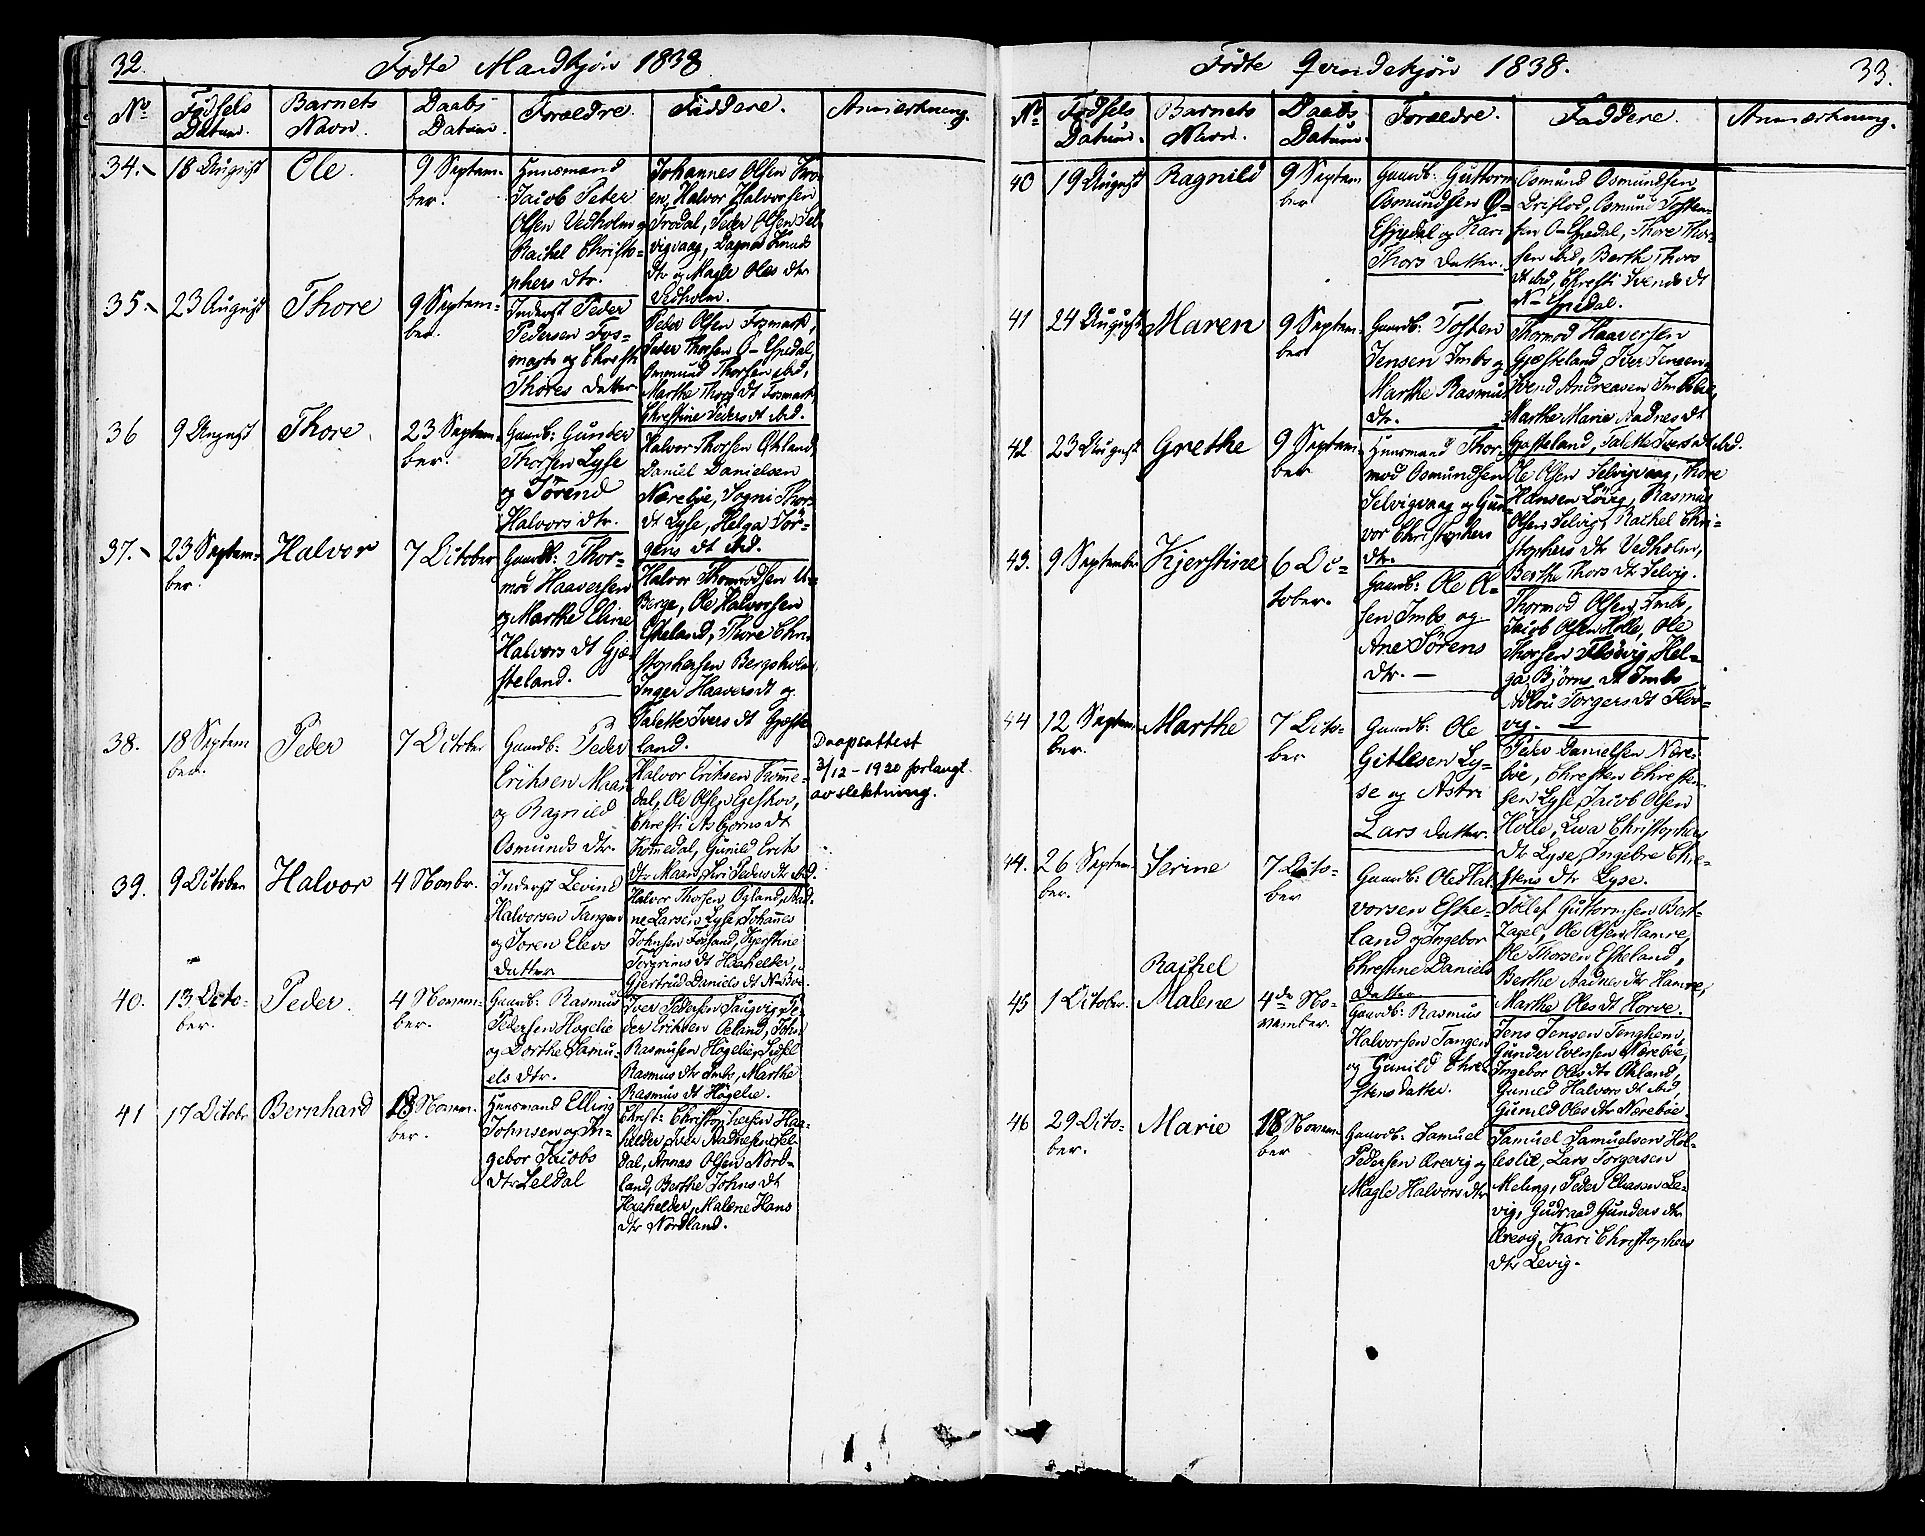 32.
Födte Mandkjön 1838
No
Födsels
Datum.
Barnets
Navn.
Daabs
Datum.
Foraeldre.
Faddere.
Anmærkning.
34.
18 August
Ole.
9 Septem-
ber.
Huusmand
Jacob Peder
Olsen Vedholm og
Rachel Christo-
phers dtr.
Johannes Olsen
en, Halvor Halvorsen
Frodal, Peder Olsen Sel
vigvaag, Dagne Knuds
dtr og Magle Oles dtr
Vedholm.
35
23 August
Thore
9 Septem-
ber.
Inderst Peder
Pedersen Fos-
mark og Christi
Thores datter
Peder Olsen Fosmark,
Peder Thorsen O-Espedal
Ommund Thorsen ibid,
Marthe Thors dt Fosmark
Christine Peders dt ibid.
36
9 August
Thore
23 Septem-
ber.
Gaardb: Gunter
Thorsen Lyse
og Sörend
Halvors dtr.
Halvor Thorsen Ohland
Daniel Danielsen
Nærebøe, Sogni Thors
dt Lyse, Helga Tör-
gers dt ibid.
37.
23 Septem-
ber.
Halvor
7 October
Gaardb: Thor-
mod Haaversen
og Marthe Eline
Halvors dt Gjæ-
steland.
Halvor Thormodsen U-
Berge, Ole Halvorsen
Eskeland, Thore Chri
stophersen Bergsholm
Inger Haavers dt og
Talette Ivers dt Gjæste
land.
38.
18 Septem
ber.
Peder
7 October
Gaardb: Peder
Eriksen Maan
og Ragnild
Osmunds dtr.
Halvor Eriksen Tromme-
dal, Ole Olsen Egeskov,
Christi Asbjørns dt
Trommedal, Gunild Eriks
dtr Maan, Siri Peders dtr ibid.
Daapsattest
3/12-1920 forlangt
av slektning.
39.
9 October
Halvor
4 Novbr.
Inderst Levind
Halvorsen Tangen
og Soren Elevs
datter
Halvor Thorsen Ogland, Aad-
ne Larsen Lyse, Johannes
Johnsen Fossand, Kjerstine
Torgrims dt Haahelder,
Gjertrud Daniels dt N-Bøe.
40.
13 Octo-
ber.
Peder.
4 Novem-
ber.
Gaardb: Rasmus
Pedersen Högelie
og Dorthe Samu-
els dtr.
Iver Pedersen Taugvig, Pe-
der Eriksen Øeland, John
Rasmusen Högelie, Sidsel
Rasmus dtr Imbs, Marthe
Rasmus dt Högelie.
41
17 Octobr
Bernhard
18 Novem-
ber.
Huusmand Elling
Johnsen og In-
gebor Jacobs
dtr Leldal
Christ: Christophersen Haa-
helder, Iver Aadnesen Lel-
dal, Annas Olsen Nord-
land, Berthe Johns dt
Haahelder, Malene Hans
dtr Nordland.
Födte Qvindekjön 1838.
33.
No
Födsels
Datum.
Barnets
Navn.
Daabs
Datum.
Foraeldre.
Faddere.
Anmærkning.
40
19 August
Ragnild
9 Septem
ber
Gaardb: Guttorm
Osmundsen O-
Espedal og Kari
Thors datter.
Osmund Osmundsen
Osmund Tosten-
sen O-Espedal, Thore Thor-
sen ibid, Berthe Thors
dt ibid, Christi Svends dt
N-Espedal.
41
24 August
Maren
9 Septem-
ber
Gaardb: Tosten
Jensen Imbs og
Marthe Rasmus
dtr.
Thormod Haaversen
Gjæsteland, Iver Jensen,
Svend Andreasen Imbs ibid,
Marthe Marie Aadnes dt
Gjæsteland, Talette Ivers dt ibid.
42
23 August
Grethe
9 Septem-
ber
Huusmand Thor-
mod Osmundsen
Selvigvaag og Gun-
vor Christophers
dtr.
Ole Olsen Selvigvaag, Thore
Hansen Lövig, Rasmus
Olsen Selvig, Rachel Chri-
stophers dtr Vedholm,
Berthe Thors dtr Selvig.
43.
9 September
Kjerstine
6 Oc-
tober.
Gaardb: Ole Ol-
sen Imbs og
Ane Sörens
dtr. —
Thormod Olsen Imbs,
Jacob Olsen Holle, Ole
Thorsen Flövig, Hel-
ga Björns dt Imbs
Adlou Torgers dt Flöv
vig. —
44
12 Septem-
ber.
Marthe
7 Octo-
ber
Gaardb: Ole
Gitlesen Ly-
se og Astri
Lars datter.
Peder Danielsen Nöre-
böe, Christen Christen-
sen Lyse, Jacob Olsen
Holle, Liva Christophers
dtr Lyse, Ingebre Chri-
stens dtr Lyse.
44.
26 Septem-
ber.
Serine
7 Octo-
ber
Gaardb: Ole Hal-
vorsen Eske-
land og Ingebor
Christine Daniels
datter
Tollef Guttormsen Bert-
zagel, Ole Olsen Hamre,
Ole Thorsen Eskeland,
Berthe Aadnes dtr Hamre,
Marthe Oles dt Horve.
45
1 October.
Rachel
Malene
4de No-
vember.
Gaardb: Rasmus
Halvorsen Tangen
og Gunild Chri-
stens datter.
Jens Jensen Tenghem,
Gunder Evensen Nöreböe,
Ingebor Oles dtr Ohland,
Gunild Halvors dt ibid,
Gunild Oles dtr Nöreböe
46
29 Octo-
ber.
Marie
18 Novem
ber
Gaardb: Samuel
Pedersen Ørevig og
Magle Halvors dtr
Samuel Samuelsen Hol-
leslie, Lars Torgersen
Meling, Peder Eliassen Le-
vig, Gudraad Gunders dtr
Ørevig, Kari Christophers
dtr Levig.